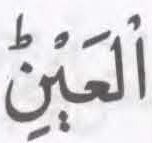 الْعَيْنِؕ